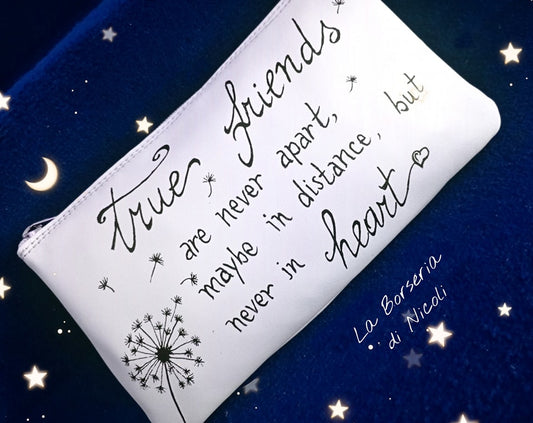 true friends
are never apart,
maybe in distance, but
never in heart
La Borseria
di Nicoli